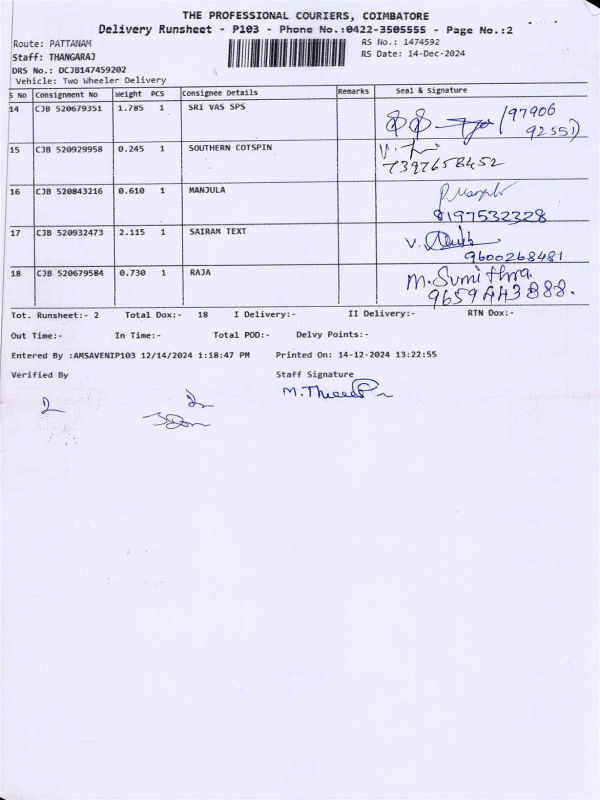 THE PROFESSIONAL COURIERS, COIMBATORE
Delivery Runsheet - P103 - Phone No.:0422-3505555 - Page No.:2
Route: PATTANAM RS No.: 1474592
Staff: THANGARAJ RS Date: 14-Dec-2024
DRS No.: DCJB147459202
Vehicle: Two Wheeler Delivery
S No Consignment No Weight PCS Consignee Details Remarks Seal & Signature
14 CJB 520679351 1.785 1 SRI VAS SPS (97906
92551)
15 CJB 520929958 0.245 1 SOUTHERN COTSPIN
7397658452
16 CJB 520843216 0.610 1 MANJULA
8197532328
17 CJB 520932473 2.115 1 SAIRAM TEXT
9600268481
18 CJB 520679584 0.730 1 RAJA M. Sumithra.
9659443888.
Tot. Runsheet:- 2 Total Dox:- 18 I Delivery:- II Delivery:- RTN Dox:-
Out Time:- In Time:- Total POD:- Delvy Points:-
Entered By :AMSAVENIP103 12/14/2024 1:18:47 PM Printed On: 14-12-2024 13:22:55
Verified By Staff Signature